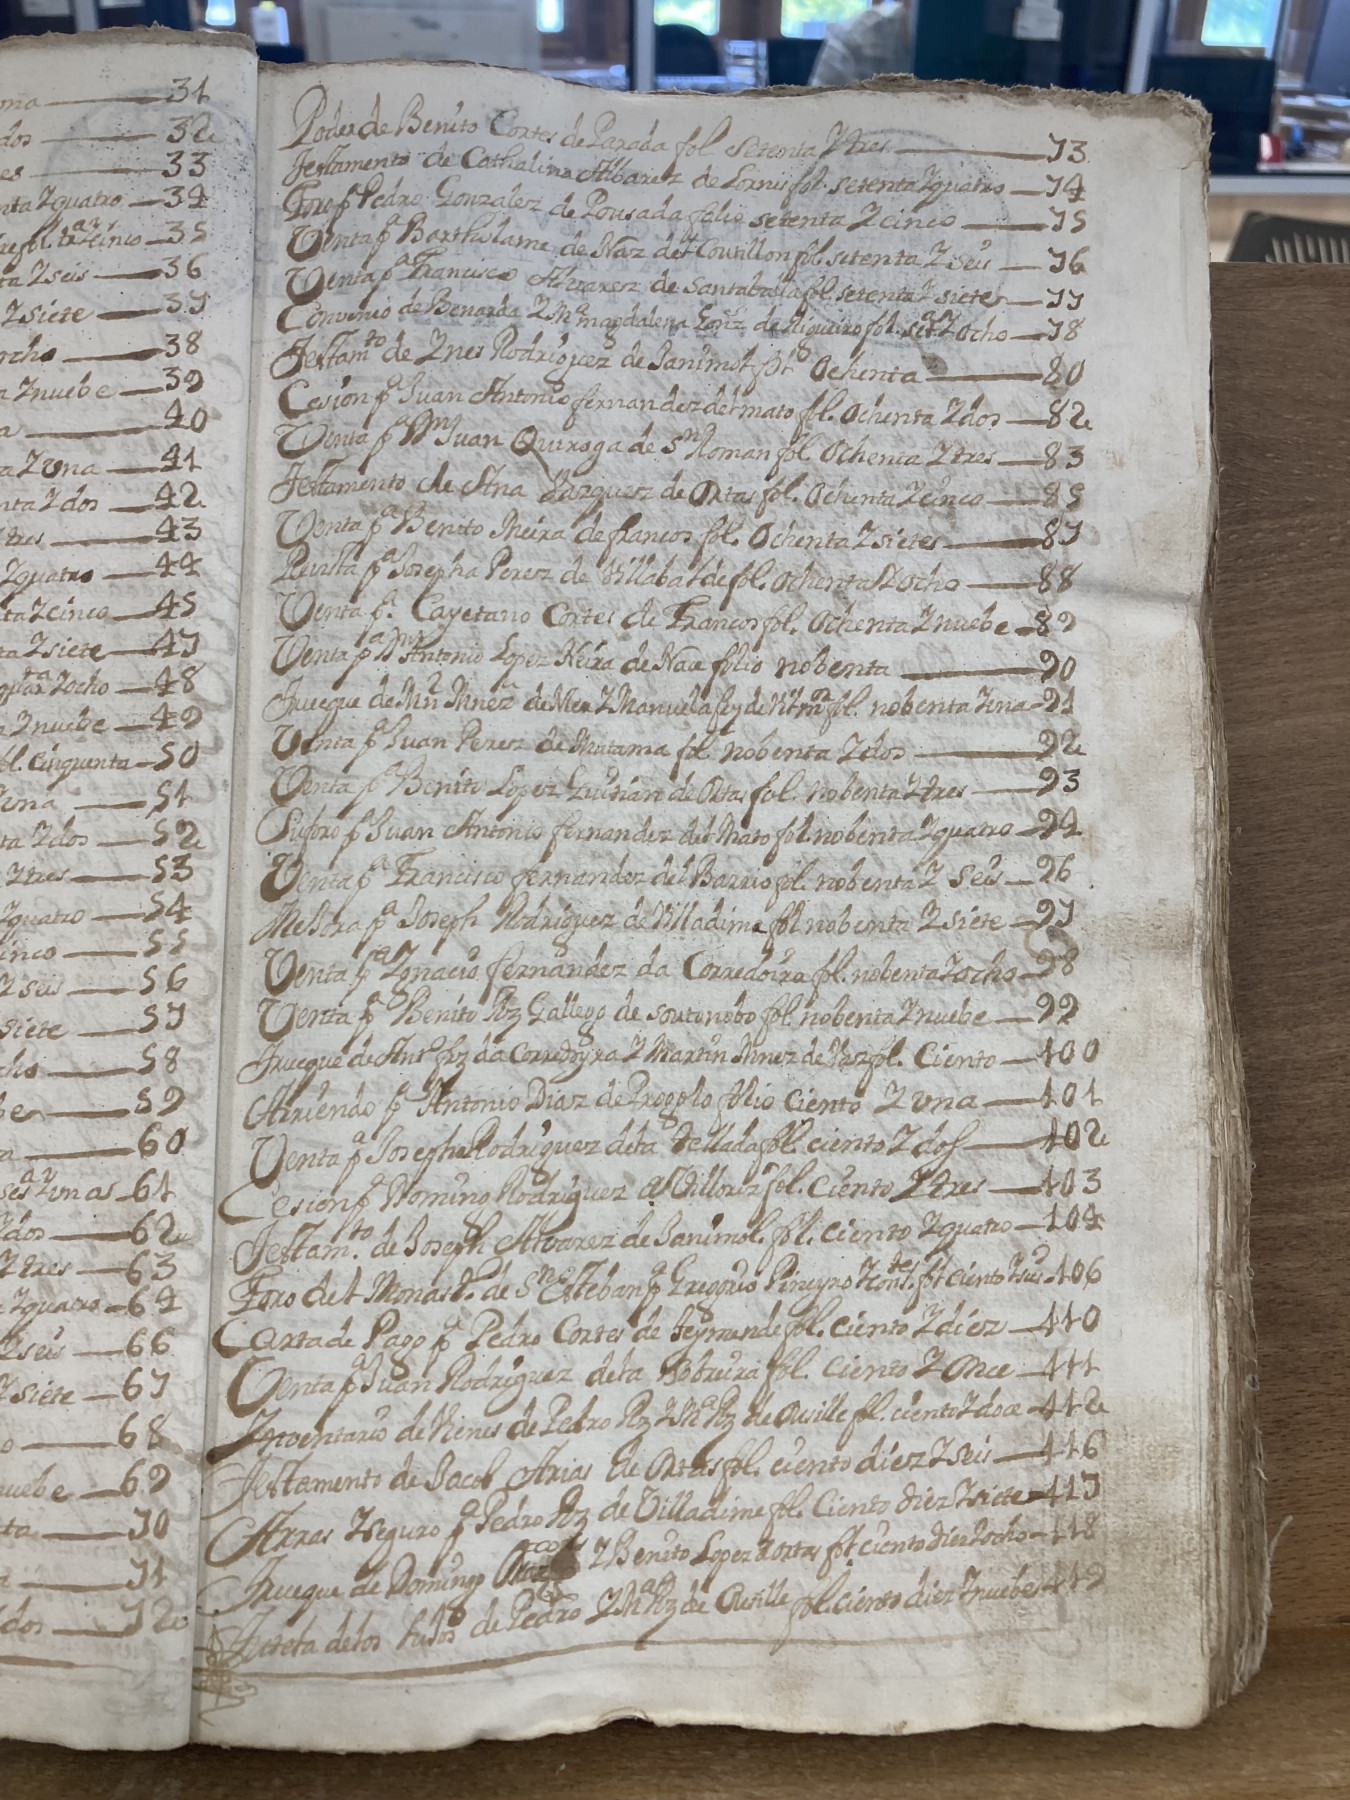 ma 31
dos 32
es 33
nta Y quatro 34
re fol. tª Y cinco 35
ta Y seis 36
Y siete 37
ocho 38
a Y nuebe 39
a 40
ta Y una 41
nta Y dos 42
Y tres 43
Y quatro 44
ta Y cinco 45
ta Y siete 47
Y ocho 48
a Y nuebe 49
fol. cinquenta 50
Y una 51
ta Y dos 52
Y tres 53
Y quatro 54
cinco 55
Y seis 56
siete 57
cho 58
be 59
a 60
Y una 61
Y dos 62
Y tres 63
Y quatro 64
Y seis 66
Y siete 67
o 68
nuebe 69
ta 70
a 71
Y dos 72
Poder de Benito Cortes de Parada fol. setenta Y tres 73
Testamento de Cathalina Albarez de fol. setenta Y quatro 74
Foro pª Pedro Gonzalez de Pousada folio setenta Y cinco 75
Venta pª Bartholame de Naz de Coutillon fol. setenta Y seis 76
Venta pª Francisco Alvarez de Santaballa fol. setenta Y siete 77
Convenio de Benarda Y Mª magdalena Gonz de Rigueiro fol. setª Y ocho 78
Testamto de Ynes Rodriguez de Sanimol folº Ochenta 80
Cesion pª Juan Antonio fernandez del mato fol. Ochenta Y dos 82
Venta pª Juan Quiroga de Sn Roman fol. Ochenta Y tres 83
Testamento de Ana Vazquez de Ortas fol. Ochenta Y cinco 85
Venta pª Benito Neira de francos fol. Ochenta Y siete 87
Revista pª Josepha Perez de Villabalde fol. ochenta Y ocho 88
Venta pª Cayetano Cortes de Francos fol. Ochenta Y nuebe 89
Venta pª Antonio Lopez Neira de Nae folio nobenta 90
Trueque de de Y Manuela de fol. nobenta Y una 91
Venta pª Juan Perez de Matama fol. nobenta Y dos 92
Venta pª Benito Lopez Guitian de Ortas fol. nobenta Y tres 93
Suforo pª Juan Antonio fernandez del Mato fol. nobenta Y quatro 94
Venta pª Francisco fernandez del Barrio fol. nobenta Y seis 96
Mestra pª Joseph Rodriguez de Villadime fol nobenta Y siete 97
Venta pª Ygnacio fernandez da Corredoira fol. nobenta Y ocho 98
Venta pª Benito Rz Gallego de soutonobo fol. nobenta Y nuebe 99
Trueque de Antº frz da Corredoyra Y Martin de fol. Ciento 100
Arriendo pª Antonio Diaz de folio ciento Y una 101
Venta pª Joseph Rodriguez dela Tellada fol. ciento Y dos 102
Cesion pª Domingo Rodriguez fol. Ciento Y tres 103
Testam.to de Joseph Alvarez de Sanimol. fol. ciento Y quatro 104
Foro del Monastº de Sn Esteban pª Gregorio Pineyro Y fol ciento Y seis 106
Carta de Pago pª Pedro Cortes de fol. ciento Y diez 110
Venta pª Juan Rodriguez dela fol. ciento Y Once 111
Ynventario de Vienes de Pedro Rz Y Mª Rz de Outille fol. ciento Y doce 112
Testamento de Jacob Arias de Ortas fol. ciento diez Y seis 116
Arras Y seguro pª Pedro Rz de Villadime fol. Ciento diez Y siete 117
Trueque de Domingo Y Benito Lopez fol ciento diez Y ocho 118
de los hijos de Pedro Y Mª Rz de Outille fol. ciento diez Y nuebe 119